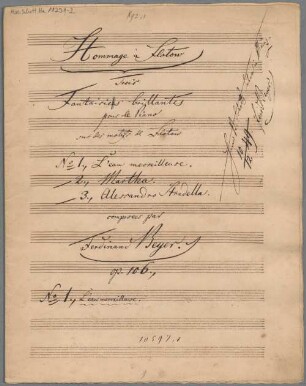 Hommage à Flotow
Trois
Fantaisies brillantes
pour le Piano
sur des motifs de Flotow
No 1, L'eau merveilleuse.
2, Martha.
3, Alessandro Stradella.
composées par
Ferdinand Beyer.
op. 106.
No 1, L'eau merveilleuse.
10597.1